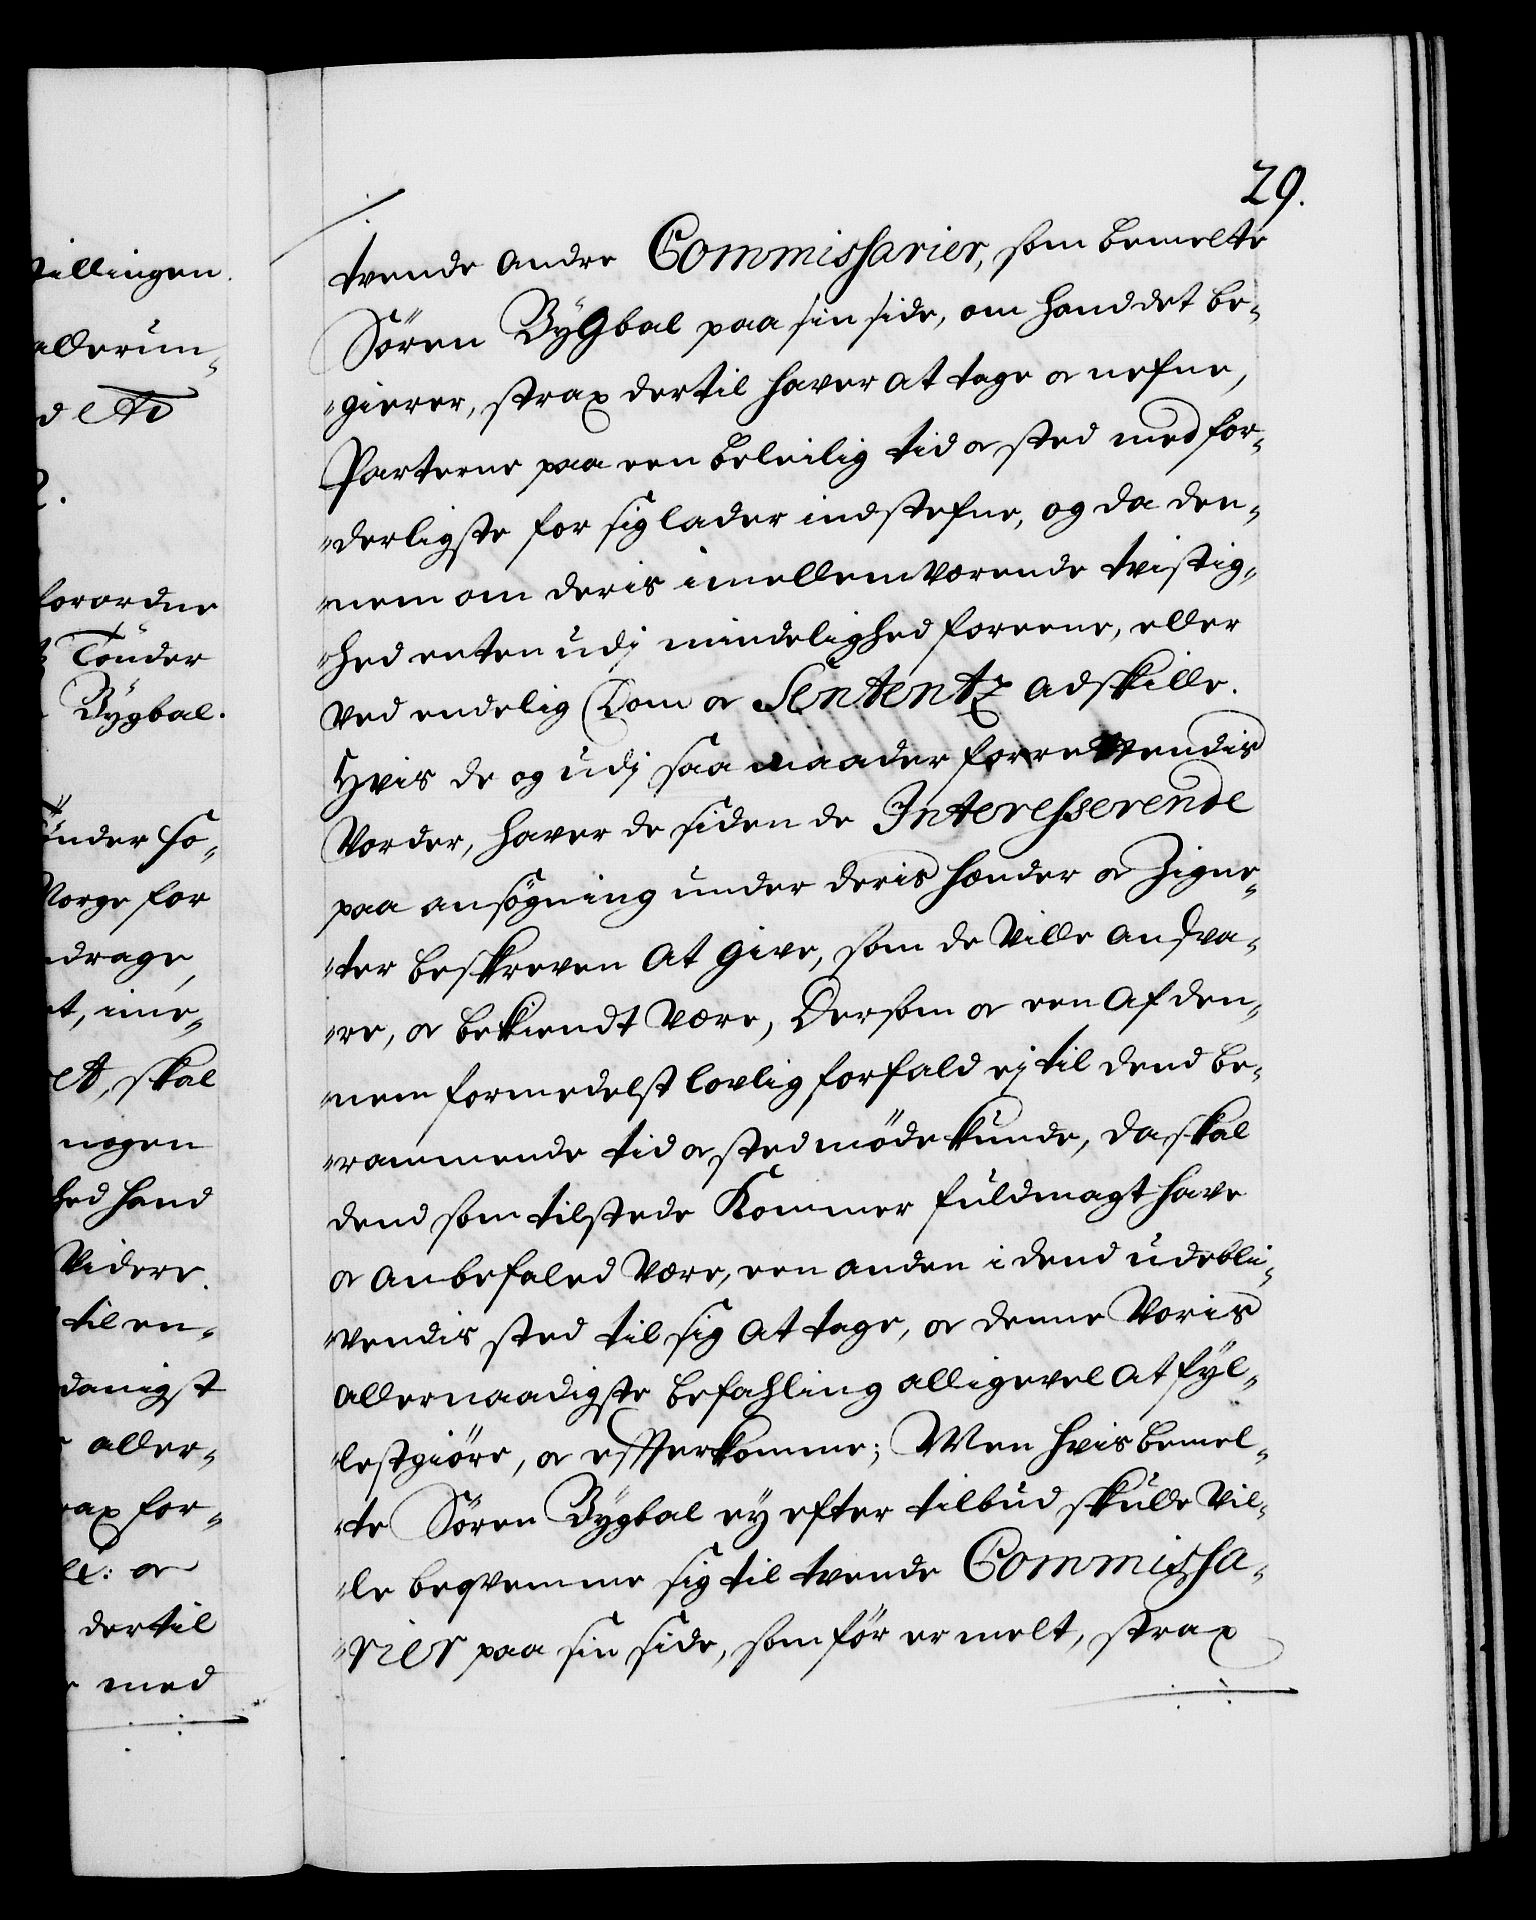 29.
tvende andre Commissarier, som bemelte
Sören Bÿgbal paa sin side, om hand det be-
gierer, strax dertil haver at tage or nefne,
Parterne paa een beleilig tid or sted med for-
derligste for sig lader indstefne, og da den-
nem om deris imellem værende tvistig-
hed enten udj mindelighed foreene, eller
ved endelig Dom or Sententz adskille.
Hvis de og udj saa maader forrettendis
vorder, haver de siden de Interesserende
paa ansögning under deris hænder or Zigne-
ter beskreven at give, som de ville ansva-
re, or bekiendt være, Dersom or een af den-
nem formedelst lovlig forfald ej til dend be-
rammende tid or sted möde kunde, da skal
dend som tilstede kommer fuldmagt have
or anbefaled være, een anden i dend udebli-
vendis sted til sig at tage, or denne voris
allernaadigste befahling alligevel at fÿl-
lestgiöre, or effterkomme; Men hvis bemel-
te Sören Bÿgbal eÿ efter tilbud skulle vil-
le beqvemme sig til tvende Commissa-
rier paa sin side, som för er melt, strax
tillingen.
allerun-
forordne
Tönder
Bÿgbal.
önder so-
Norge for
drage,
et, ime-
et, skal
nogen
hed hand
videre.
til en-
danigst
aller-
rax for-
or
dertil
med